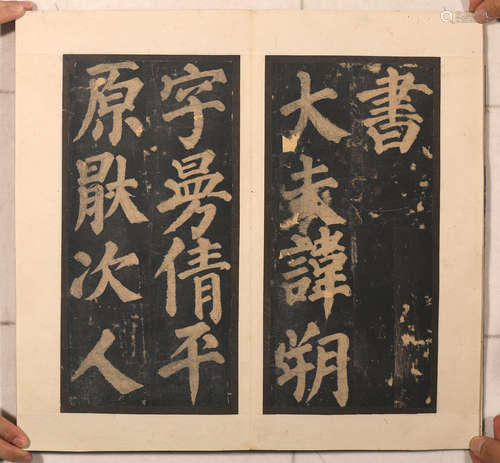 書
大夫諱朔
字曼倩平
原厭次人